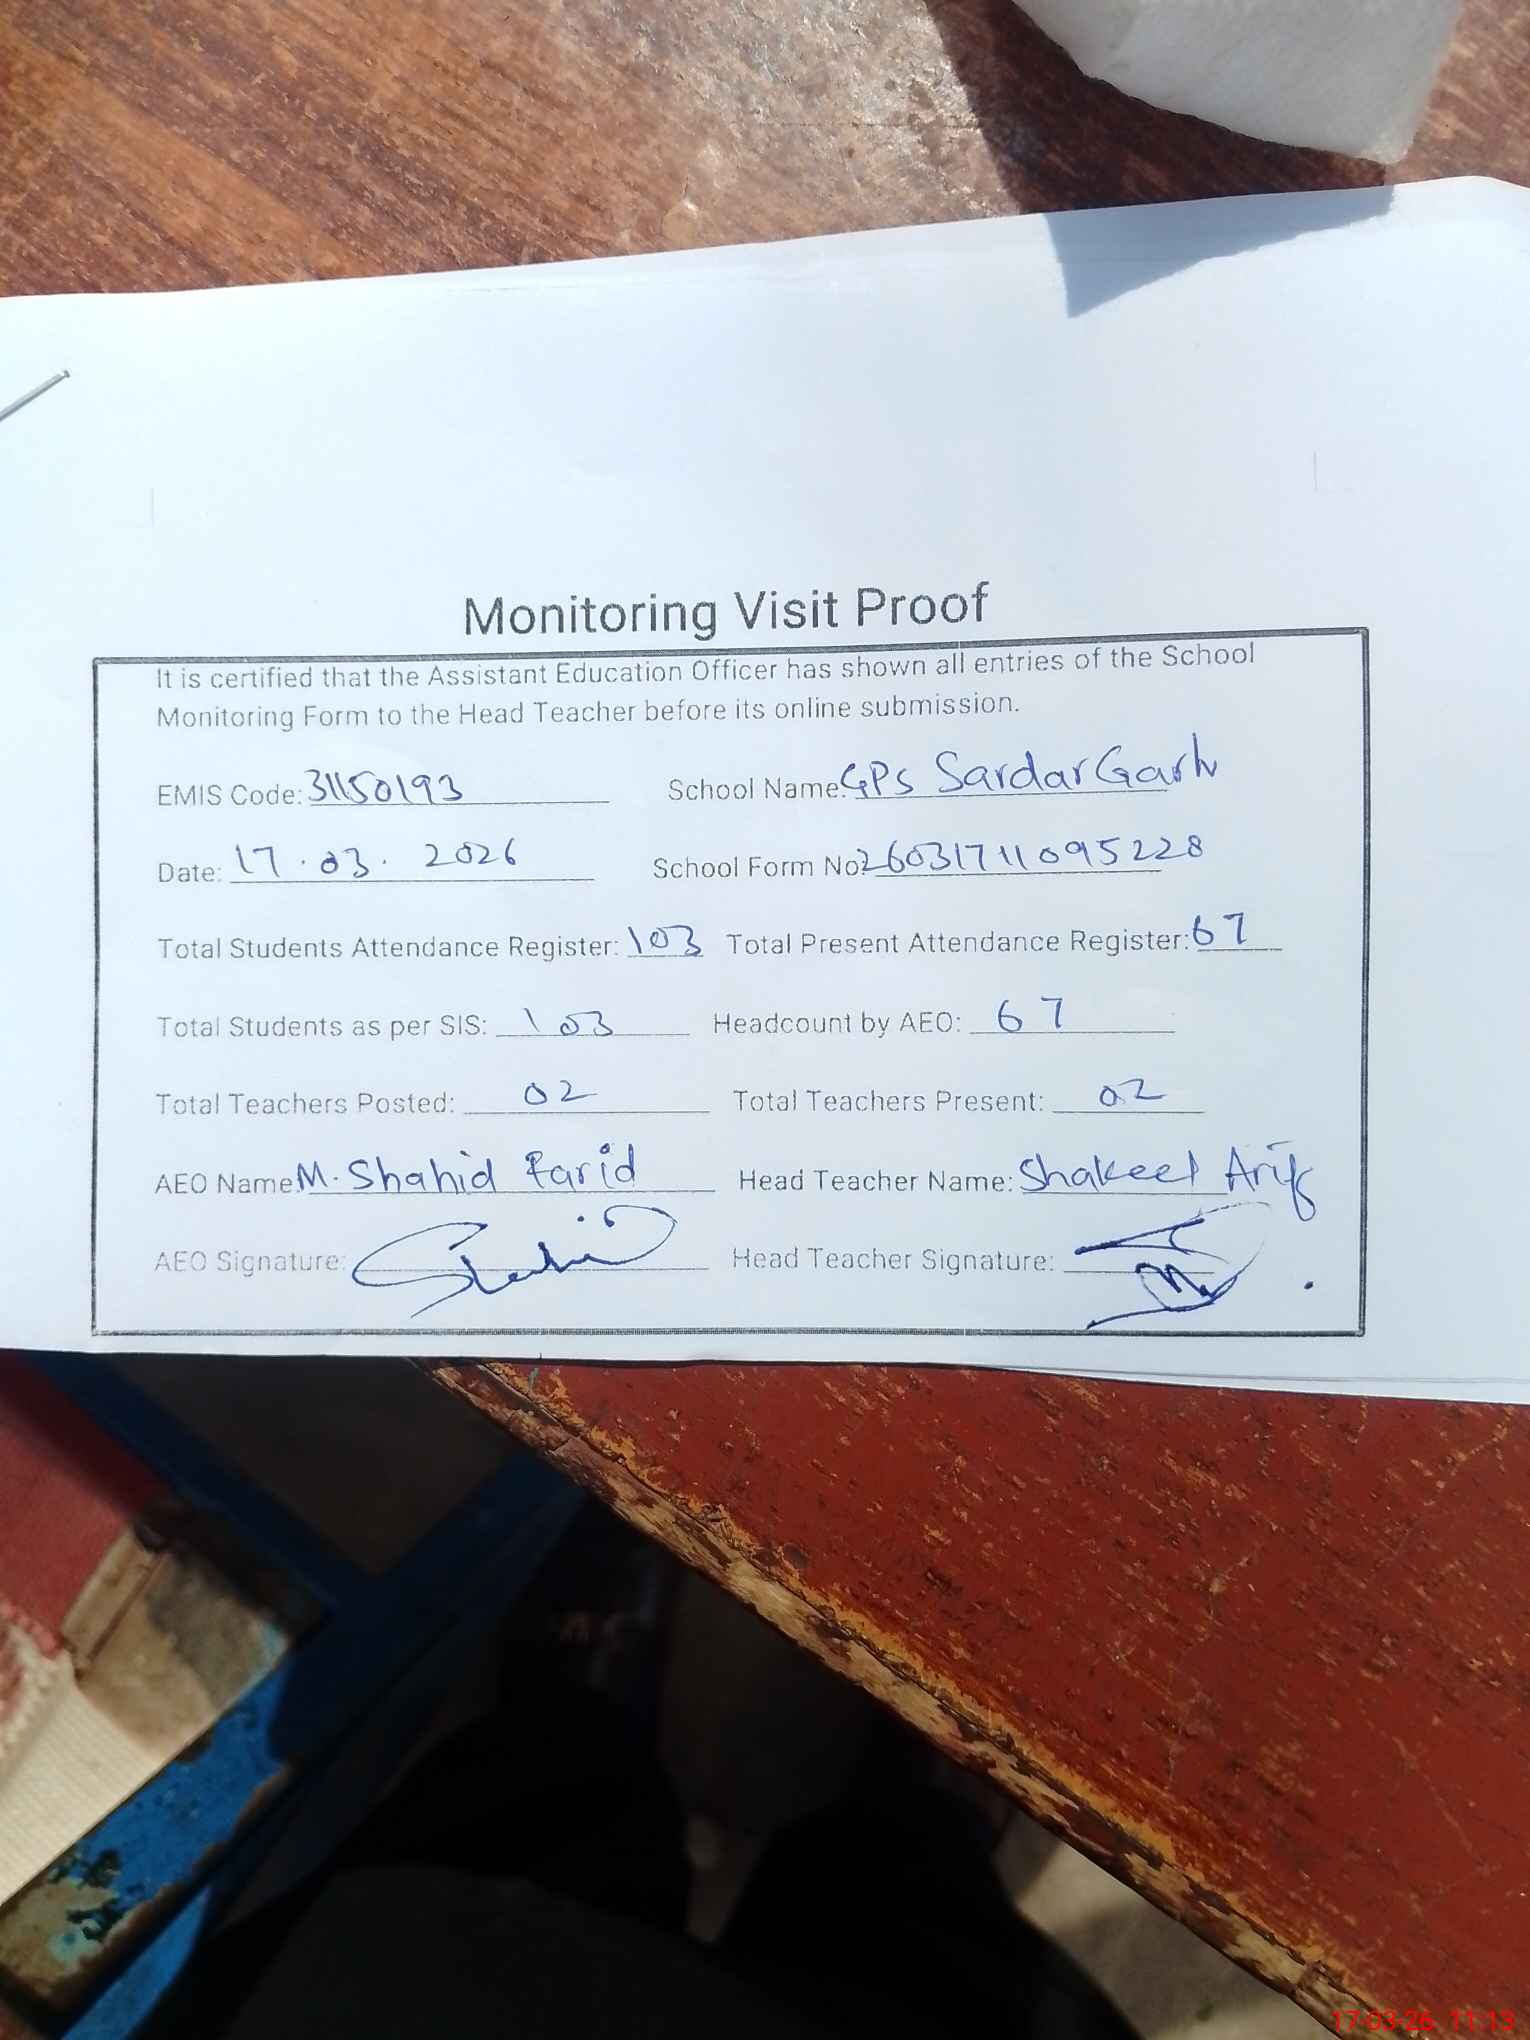 Monitoring Visit Proof
It is certified that the Assistant Education Officer has shown all entries of the School
Monitoring Form to the Head Teacher before its online submission.
EMIS Code: 31150193 School Name: GPS Sardar Garh
Date: 17.03.2026 School Form No: 26031711095228
Total Students Attendance Register: 103 Total Present Attendance Register: 67
Total Students as per SIS: 103 Headcount by AEO: 67
Total Teachers Posted: 02 Total Teachers Present: 02
AEO Name: M. Shahid Farid Head Teacher Name: Shakeel Arif
AEO Signature: Head Teacher Signature:
17-03-26 11:13